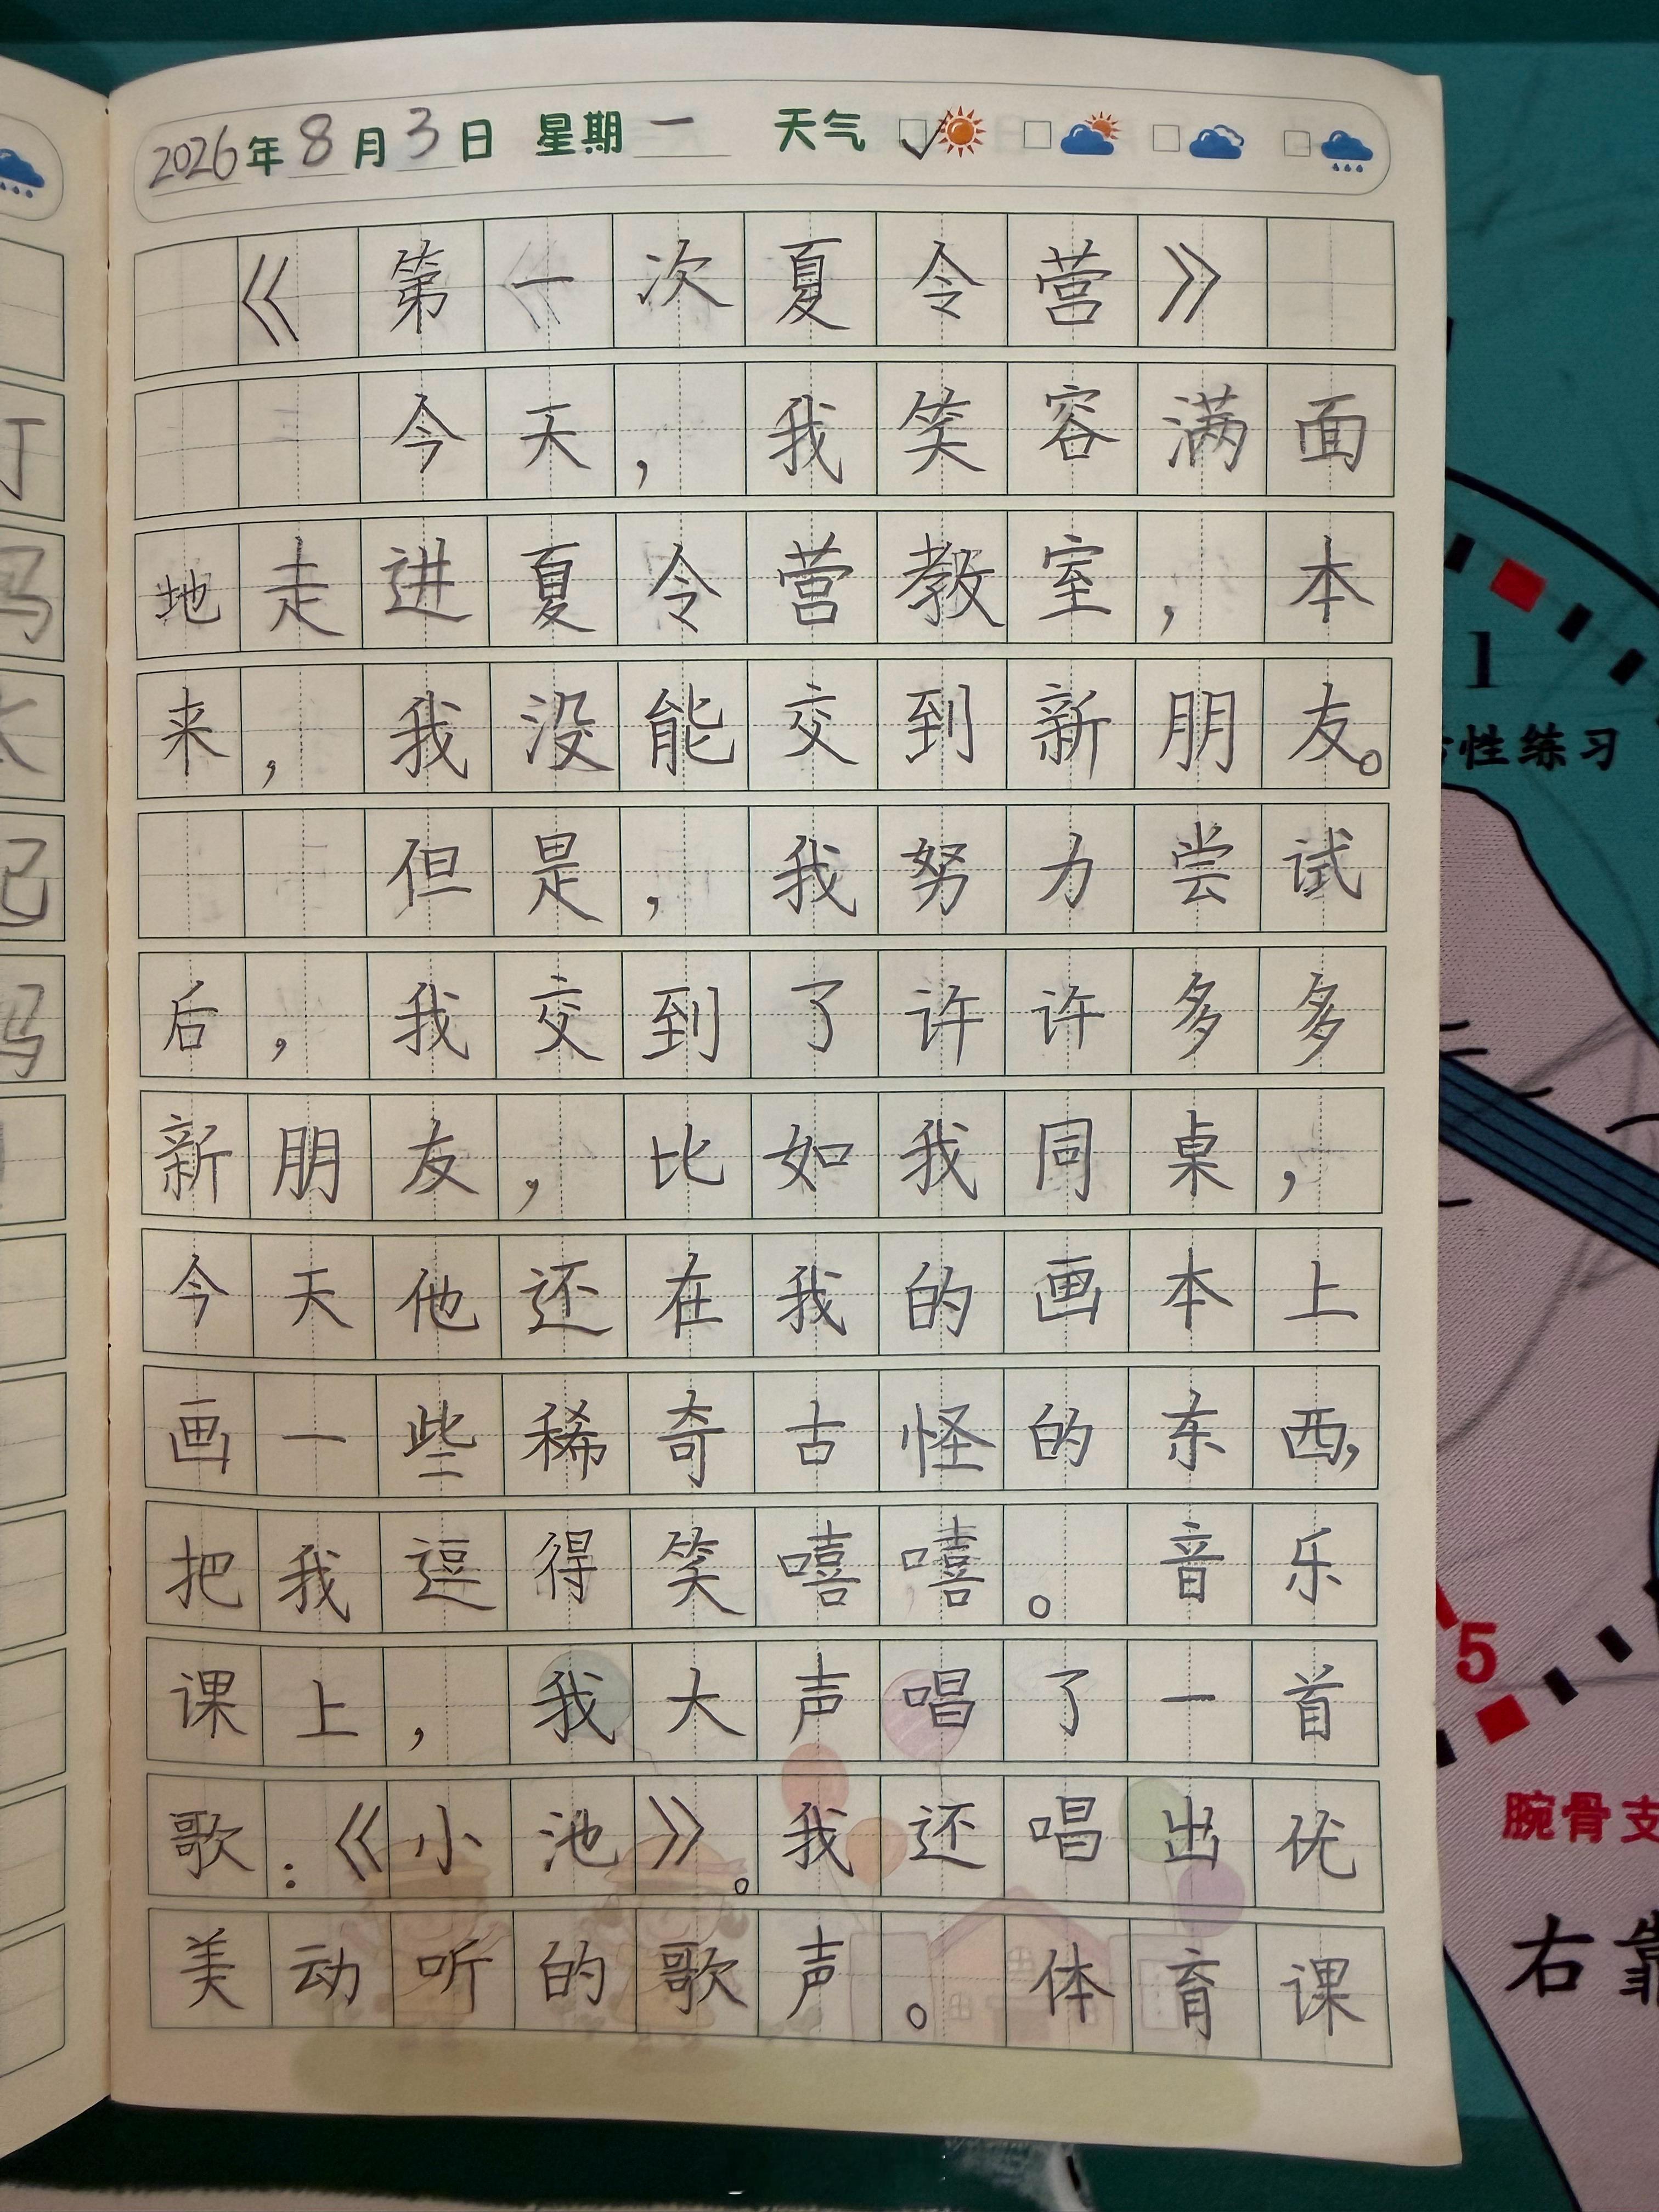 2026年8月3日 星期一 天气
《第一次夏令营》
今天，我笑容满面
地走进夏令营教室，本
来，我没能交到新朋友。
但是，我努力尝试
后，我交到了许许多多
新朋友，比如我同桌，
今天他还在我的画本上
画一些稀奇古怪的东西，
把我逗得笑嘻嘻。音乐
课上，我大声唱了一首
歌：《小池》。我还唱出优
美动听的歌声。体育课
1
性练习
5
腕骨支
右靠